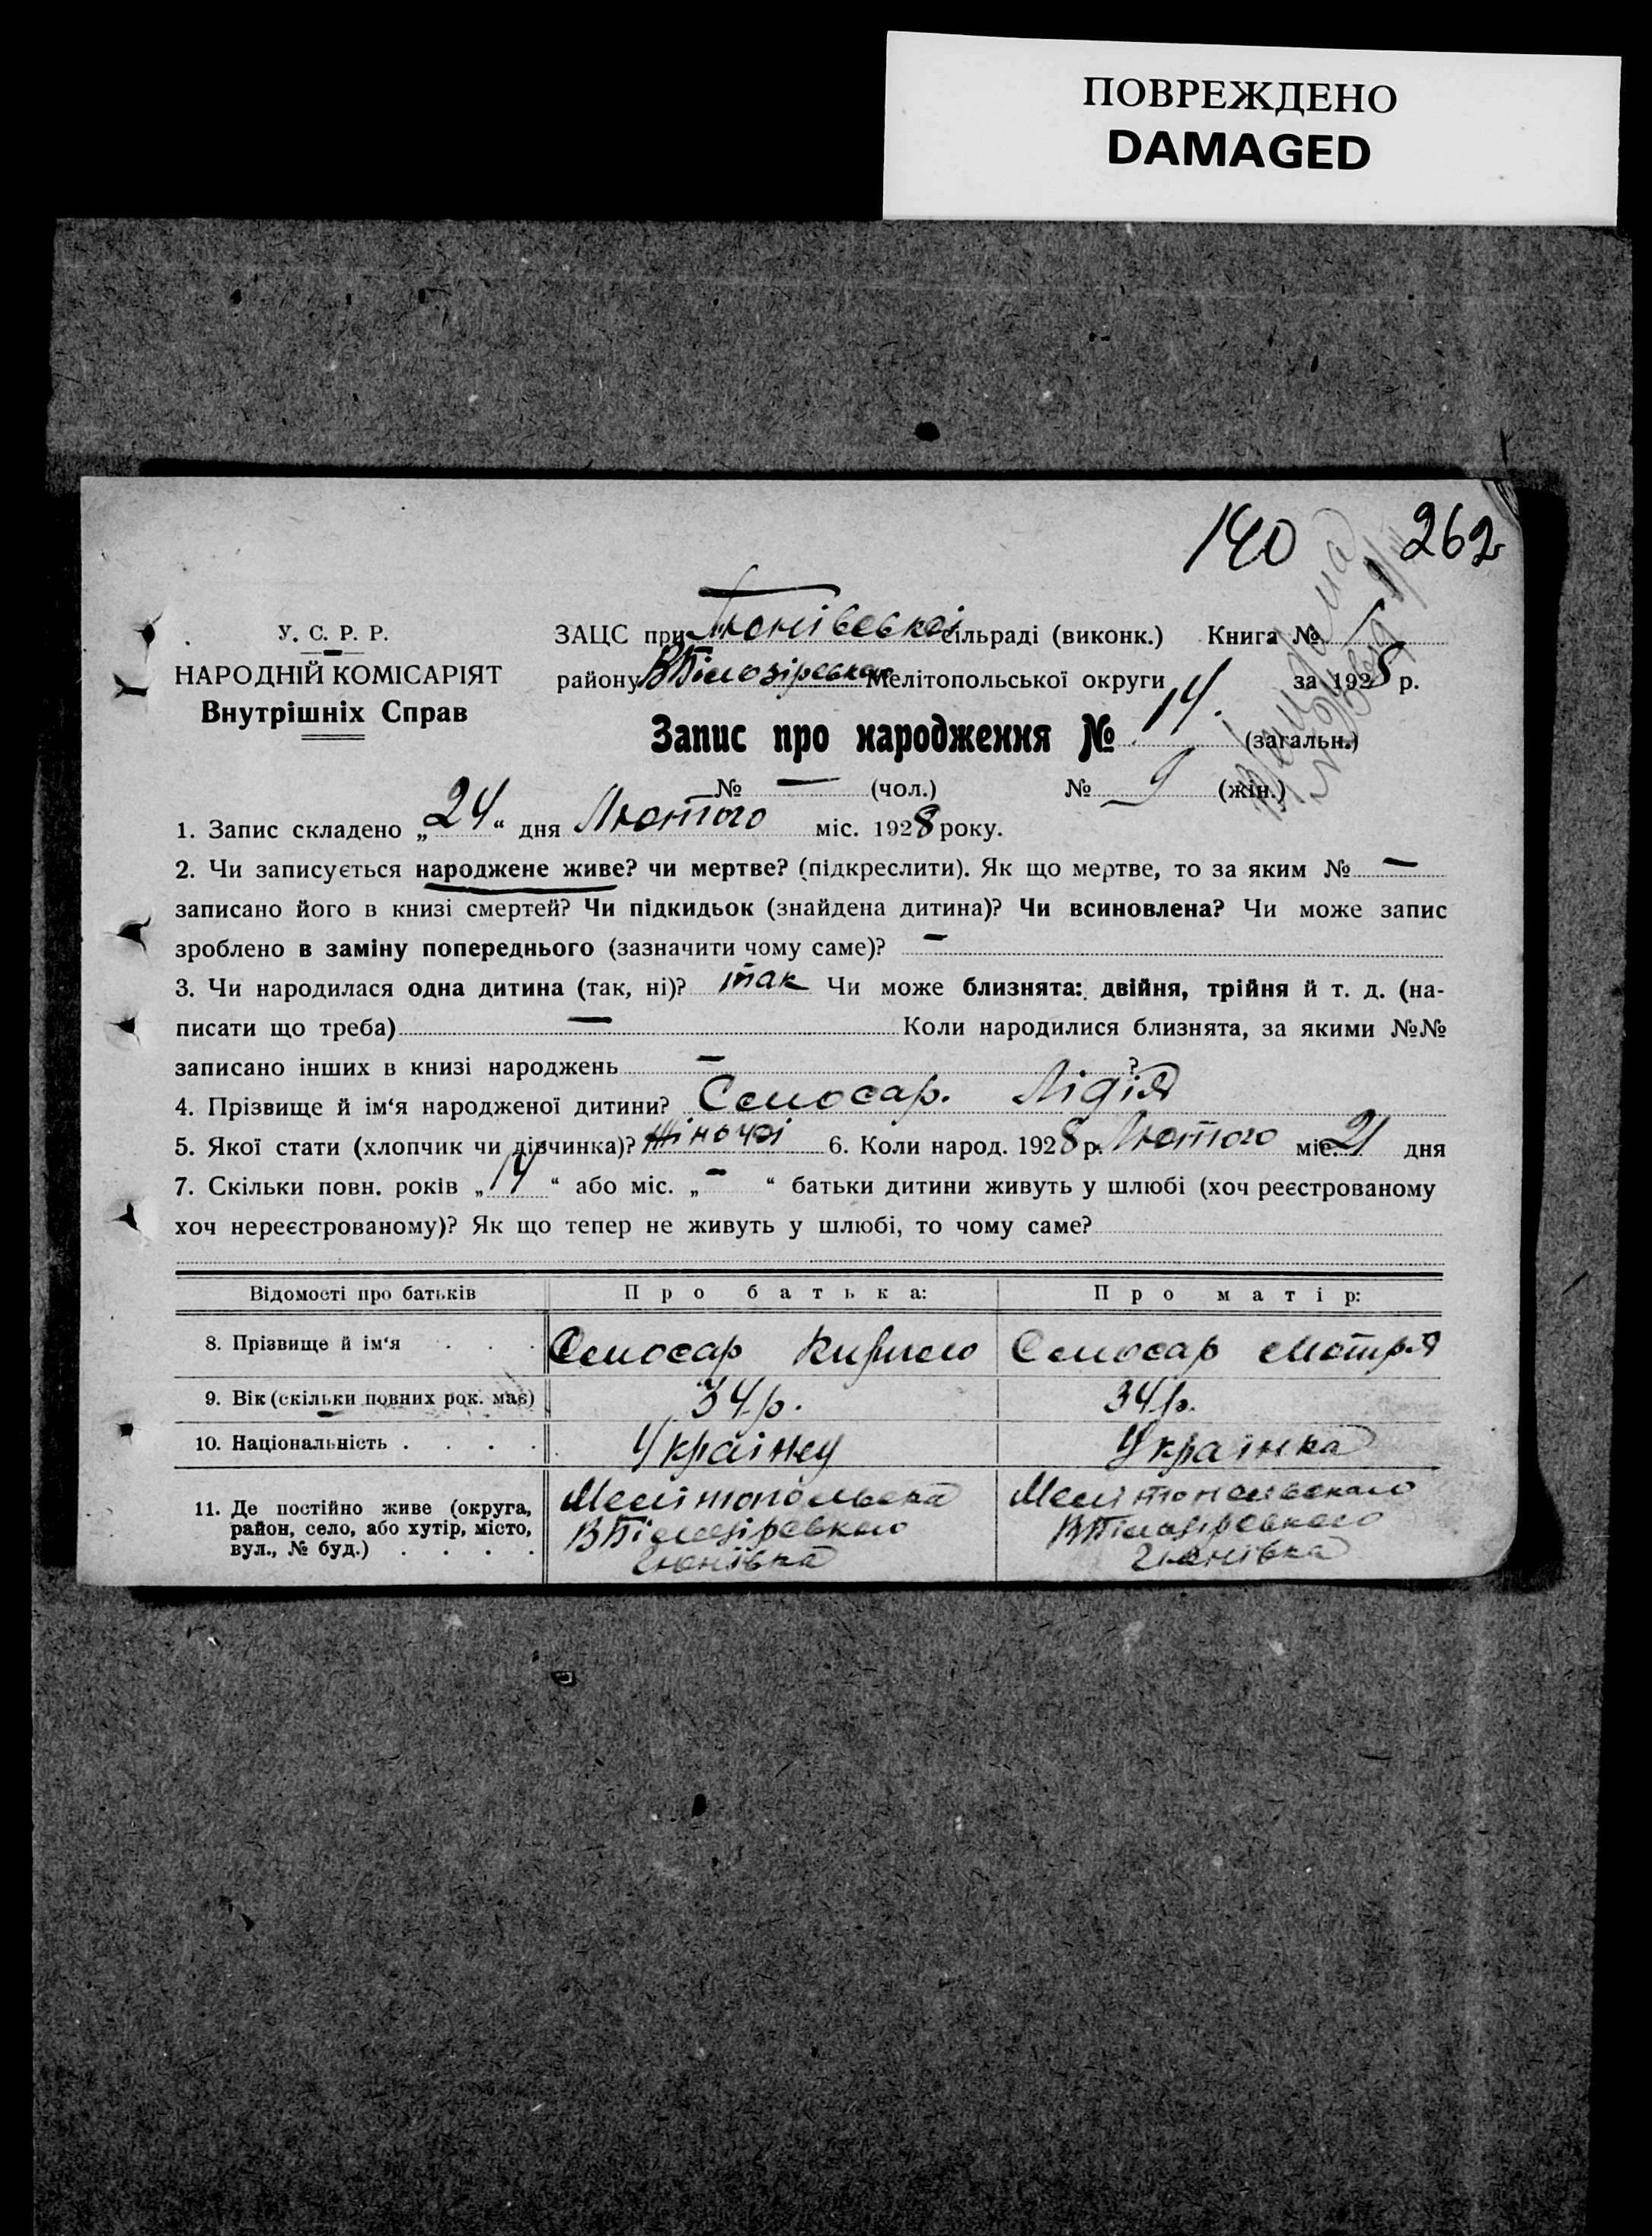 ПОВРЕЖДЕНО
DAMAGED
140 262
У. С. Р. Р.
НАРОДНІЙ КОМІСАРІЯТ
Внутрішніх Справ
ЗАЦС при Гюнівської сільраді (виконк.) Книга №
району ВБілозірськ Мелітопольської округи за 1928 р.
Запис про народження № 14. (загальн.)
№ — (чол.) № 9 (жін.)
1. Запис складено „24“ дня Лютого міс. 1928 року.
2. Чи записується народжене живе? чи мертве? (підкреслити). Як що мертве, то за яким № —
записано його в книзі смертей? Чи підкидьок (знайдена дитина)? Чи всиновлена? Чи може запис
зроблено в заміну попереднього (зазначити чому саме)? —
3. Чи народилася одна дитина (так, ні)? так Чи може близнята: двійня, трійня й т. д. (на-
писати що треба) — Коли народилися близнята, за якими №№
записано інших в книзі народжень — ?
4. Прізвище й ім‘я народженої дитини? Слюсар. Лідія
5. Якої стати (хлопчик чи дівчинка)? Жіночої 6. Коли народ. 1928 р. Лютого міс. 21 дня
7. Скільки повн. років „14“ або міс. „—“ батьки дитини живуть у шлюбі (хоч реєстрованому
хоч нереєстрованому)? Як що тепер не живуть у шлюбі, то чому саме?
Відомості про батьків Про батька: Про матір:
8. Прізвище й ім‘я . . . Слюсар Кирило Слюсар Мотря
9. Вік (скільки повних рок. має) 34 р. 34 р.
10. Національність . . . . Українец Українка
11. Де постійно живе (округа,
район, село, або хутір, місто,
вул., № буд.) . . . .
Мелітопольська
ВБілозірського
Гюнівка
Мелітопольського
ВБілозірського
Гюнівка